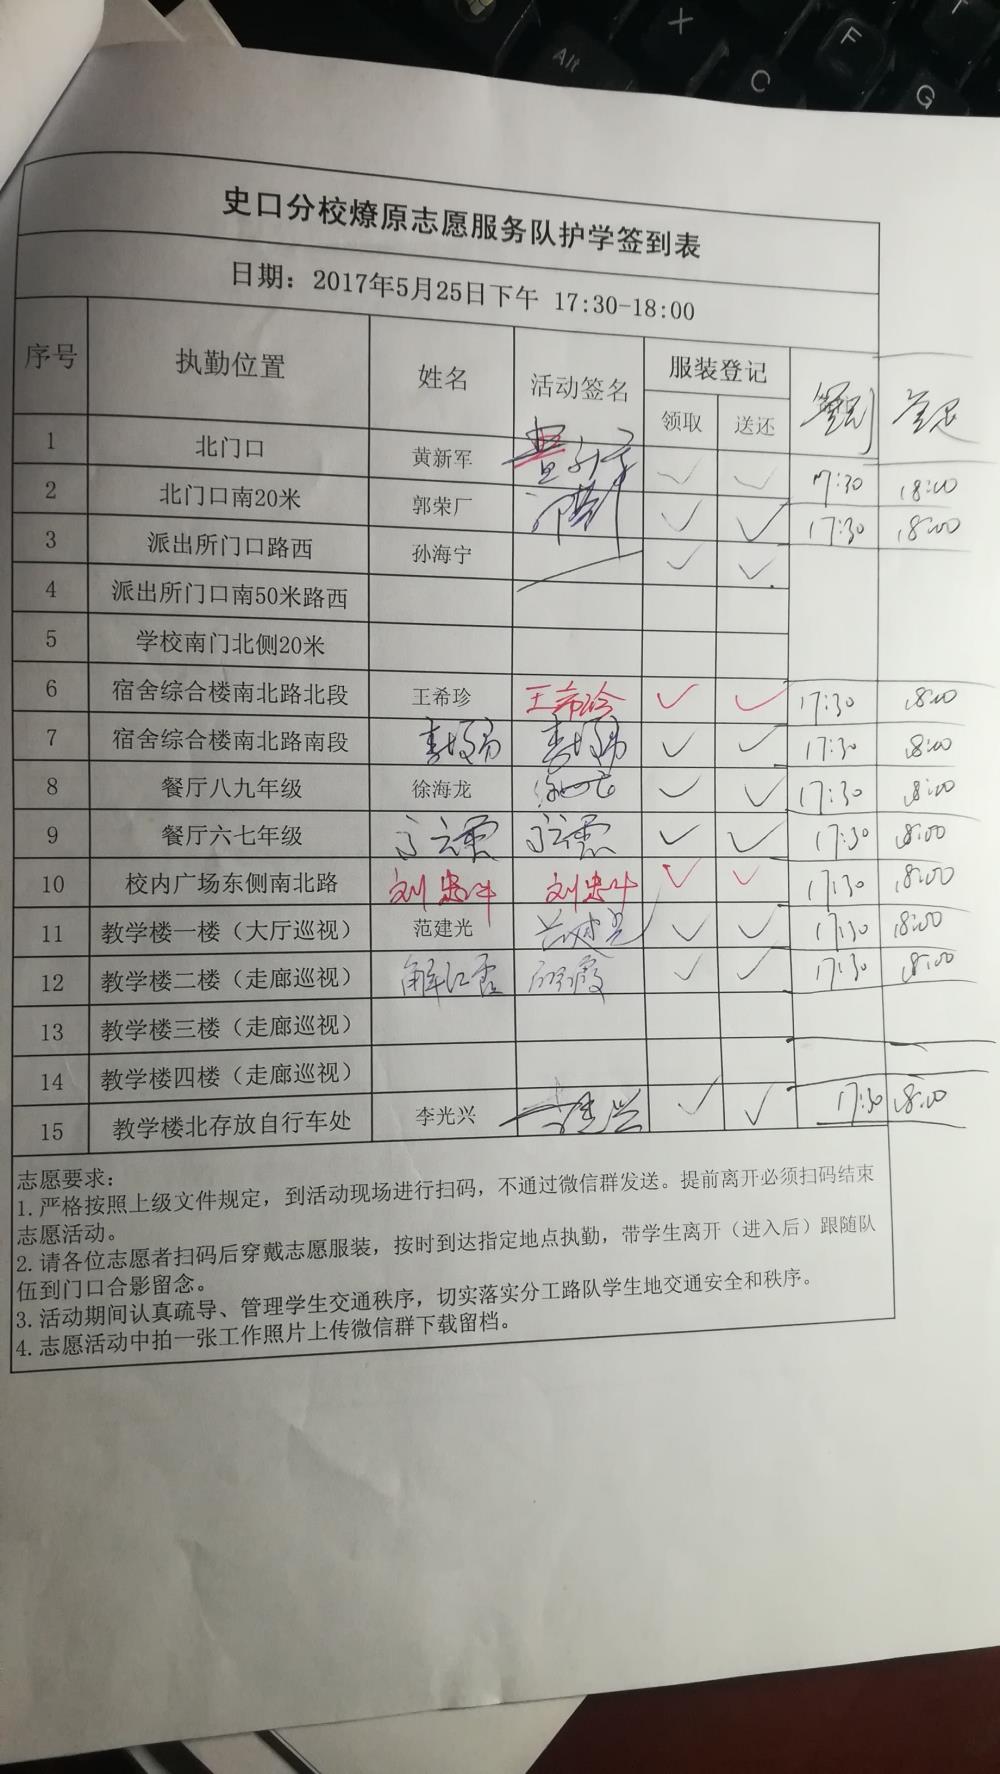 史口分校燎原志愿服务队护学签到表
日期：2017年5月25日下午 17:30-18:00
序号 执勤位置 姓名 活动签名 服装登记 签到 签退
领取 送还
1 北门口 黄新军 黄新军 ✓ ✓ 17:30 18:00
2 北门口南20米 郭荣厂 ✓ ✓ 17:30 18:00
3 派出所门口路西 孙海宁 ✓ ✓
4 派出所门口南50米路西
5 学校南门北侧20米
6 宿舍综合楼南北路北段 王希珍 王希珍 ✓ ✓ 17:30 18:00
7 宿舍综合楼南北路南段 ✓ ✓ 17:30 18:00
8 餐厅八九年级 徐海龙 ✓ ✓ 17:30 18:00
9 餐厅六七年级 ✓ ✓ 17:30 18:00
10 校内广场东侧南北路 ✓ ✓ 17:30 18:00
11 教学楼一楼（大厅巡视） 范建光 ✓ ✓ 17:30 18:00
12 教学楼二楼（走廊巡视） 解红霞 ✓ ✓ 17:30 18:00
13 教学楼三楼（走廊巡视）
14 教学楼四楼（走廊巡视）
15 教学楼北存放自行车处 李光兴 李光兴 ✓ ✓ 17:30 18:00
志愿要求：
1.严格按照上级文件规定，到活动现场进行扫码，不通过微信群发送。提前离开必须扫码结束
志愿活动。
2.请各位志愿者扫码后穿戴志愿服装，按时到达指定地点执勤，带学生离开（进入后）跟随队
伍到门口合影留念。
3.活动期间认真疏导、管理学生交通秩序，切实落实分工路队学生地交通安全和秩序。
4.志愿活动中拍一张工作照片上传微信群下载留档。
Alt
X
C
F
G